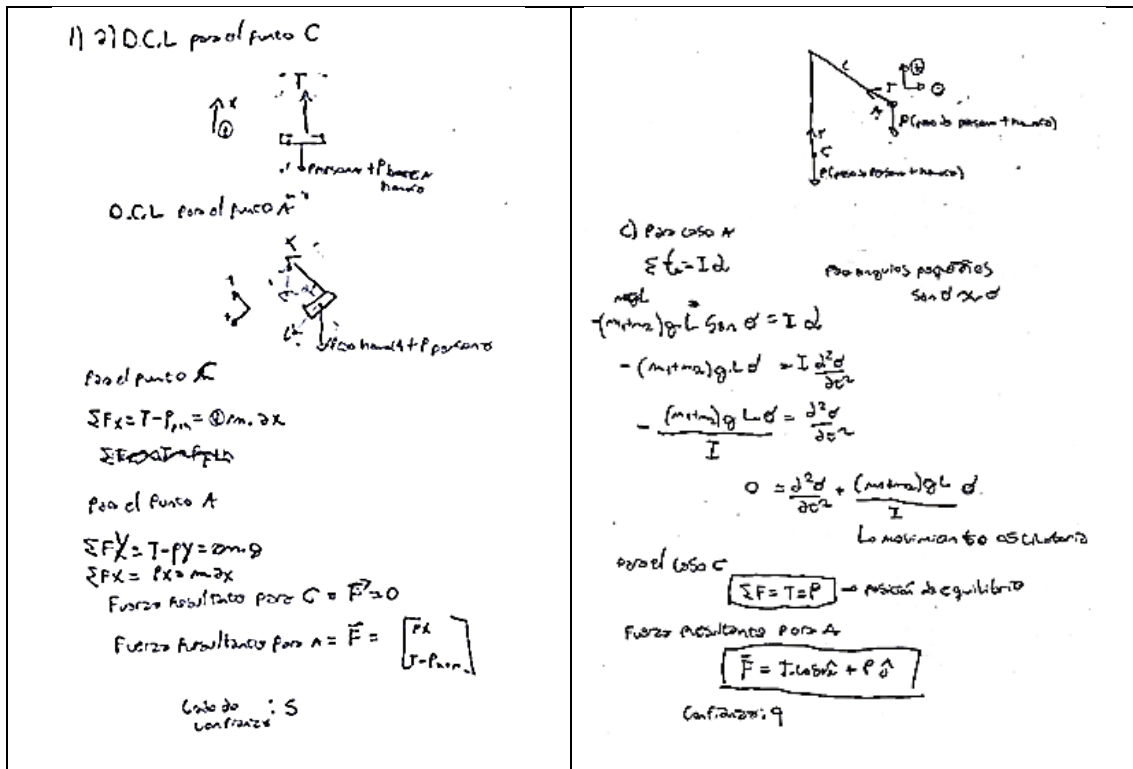 1) a) D.C.L para el punto C
T
X
Ppersona + P
banco
D.C.L para el punto A
X
Peso banca + P persona
Para el punto C
ΣFx = T - Pp,m = m.ax
Para el punto A
ΣFY = T - Py = m.a
ΣFx = Px = m.ax
Fuerza Resultante para C = F = 0
Fuerza Resultante para A = F = [Px
T-P
Grado de confianza : 5
L
T
A
P(peso de persona + banco)
T
C
P(peso de persona + banco)
C) Para caso A
Στ = Iα
Para angulos pequeños
sen σ ≈ σ
mgL
-(m1+m2)gL sen σ = I α
-(m1+m2)g.Lσ = I ∂²σ/∂t²
- (m1+m2)gLσ / I = ∂²σ/∂t²
0 = ∂²σ/∂t² + (m1+m2)gL / I σ
Lo movimiento oscilatorio
para el caso C
ΣF = T = P → posición de equilibrio
Fuerza resultante para A
Confianza: 9